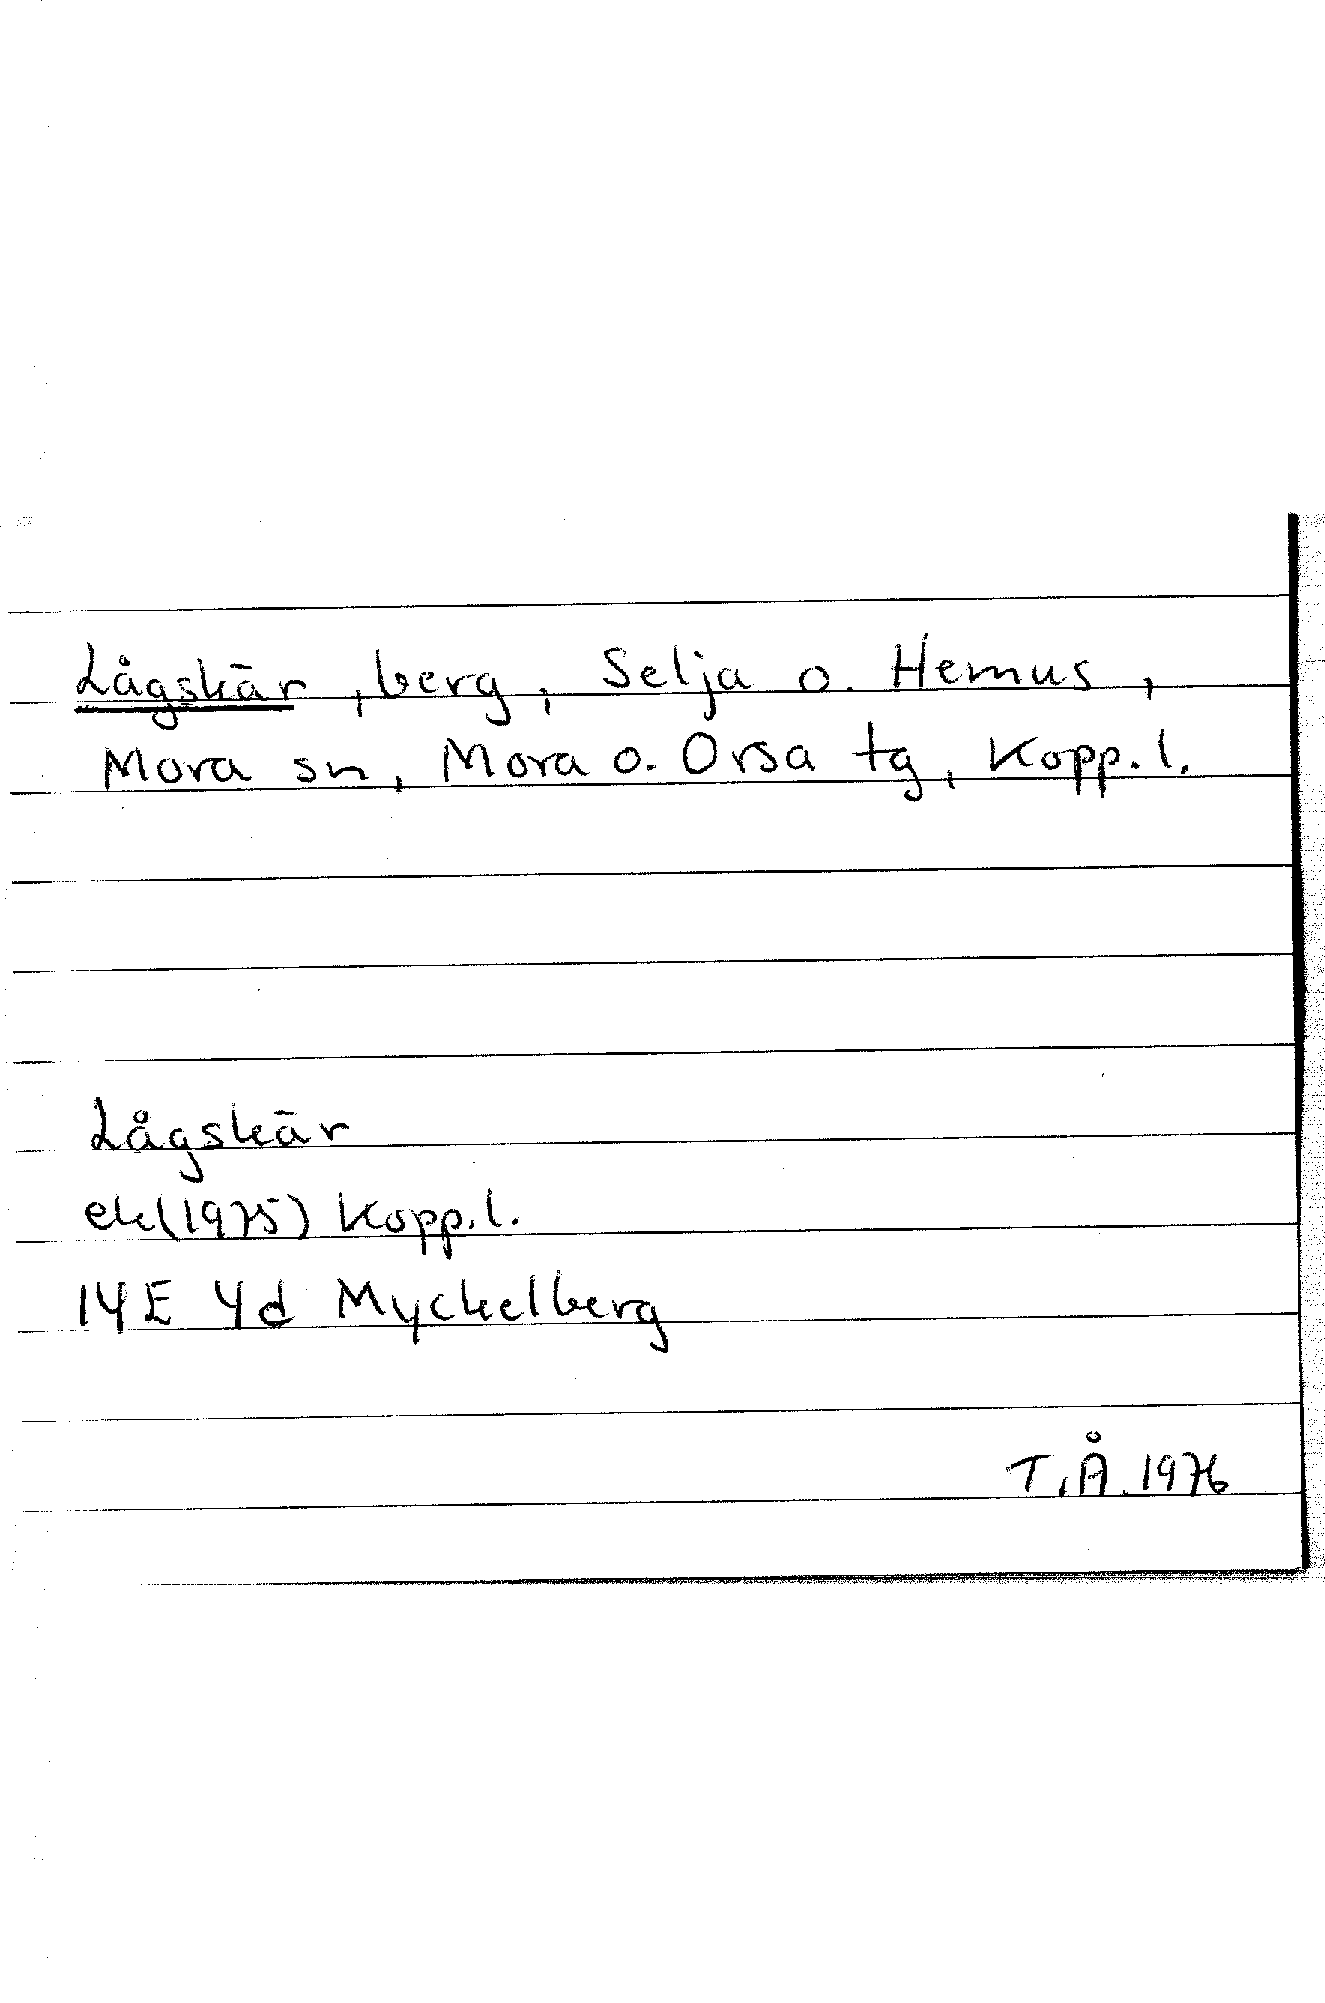 Lågskär, berg, Selja o. Hemus,
Mora sn, Mora o. Orsa tg, Kopp. l.
Lågskär
ek (1975) Kopp. l.
14E 4d Myckelberg
T.Å. 1976